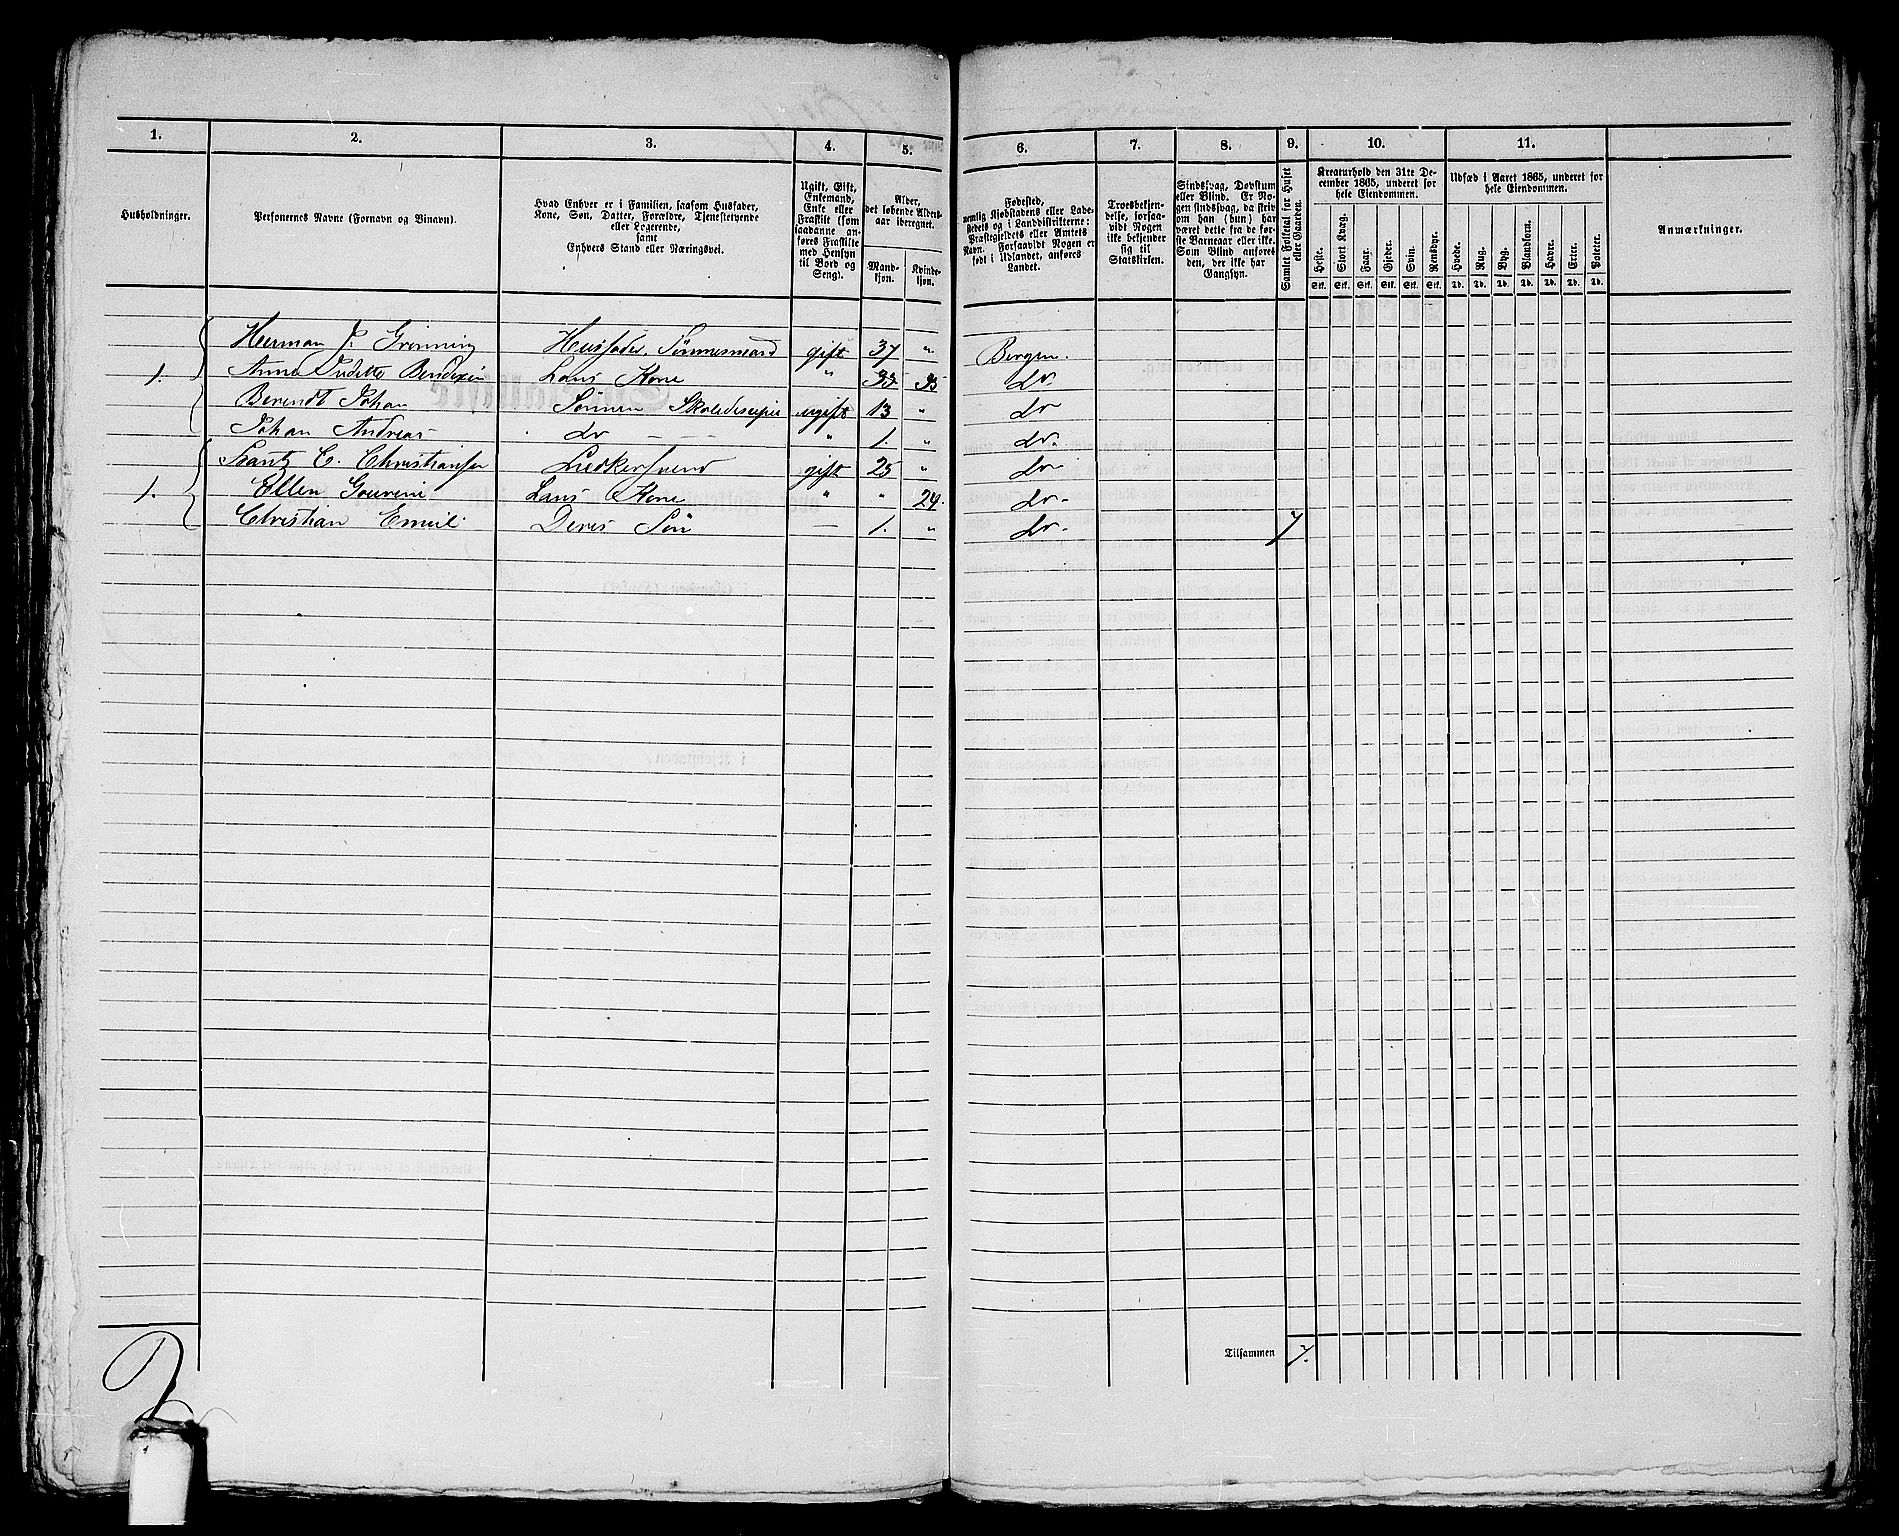 1. 2. 3. 4. 5. 6. 7. 8. 9. 10. 11.
Husholdninger.
Personernes Navne (Fornavn og Binavn).
Hvad Enhver er i Familien, saasom Husfader,
Kone, Søn, Datter, Forældre, Tjenestetyende
eller Logerende,
samt
Enhvers Stand eller Næringsvei.
Ugift, Gift,
Enkemand,
Enke eller
Fraskilt (som
saadanne an-
føres Fraskilte
med Hensyn
til Bord og
Seng).
Alder,
det løbende Alders-
aar iberegnet.
Mand-
kjøn.
Kvinde-
kjøn.
Fødested,
nemlig Kjøbstadens eller Lade-
stedets og i Landdistrikterne:
Præstegjeldets eller Amtets
Navn. Forsaavidt Nogen er
født i Udlandet, anføres
Landet.
Troesbekjen-
delse, forsaa-
vidt Nogen
ikke bekjender
sig til
Statskirken.
Sindssvag, Døvstum
eller Blind. Er No-
gen sindssvag, da skriv
om han (hun) har
været dette fra de før-
ste Barneaar eller ikke.
Som Blind anføres
den, der ikke har
Gangsyn.
Samlet Folketal for Huset
eller Gaarden.
Kreaturhold den 31te De-
cember 1865, underet for
hele Eiendommen.
Heste. Stort Kvæg. Faar. Gjeder. Svin. Rensdyr.
Stk. Stk. Stk. Stk. Stk. Stk.
Udsæd i Aaret 1865, underet for
hele Eiendommen.
Hvede. Rug. Byg. Blandkorn. Havre. Erter. Poteter.
Td. Td. Td. Td. Td. Td. Td.
Anmærkninger.
Herman J. Grønning Husfader, Tømmermand gift 37 " Bergen.
1. Anna Indette Bendixen Hans Kone " 35 do
Berendt Johan Sønnen ugift 13 " do
Johan Andreas do " 1. " do.
C. Christiansen gift 25 " do
1. Ellen Hans Kone " " 24. do.
Christian Emiil Deres Søn — 1. " do. 7
Tilsammen 7.